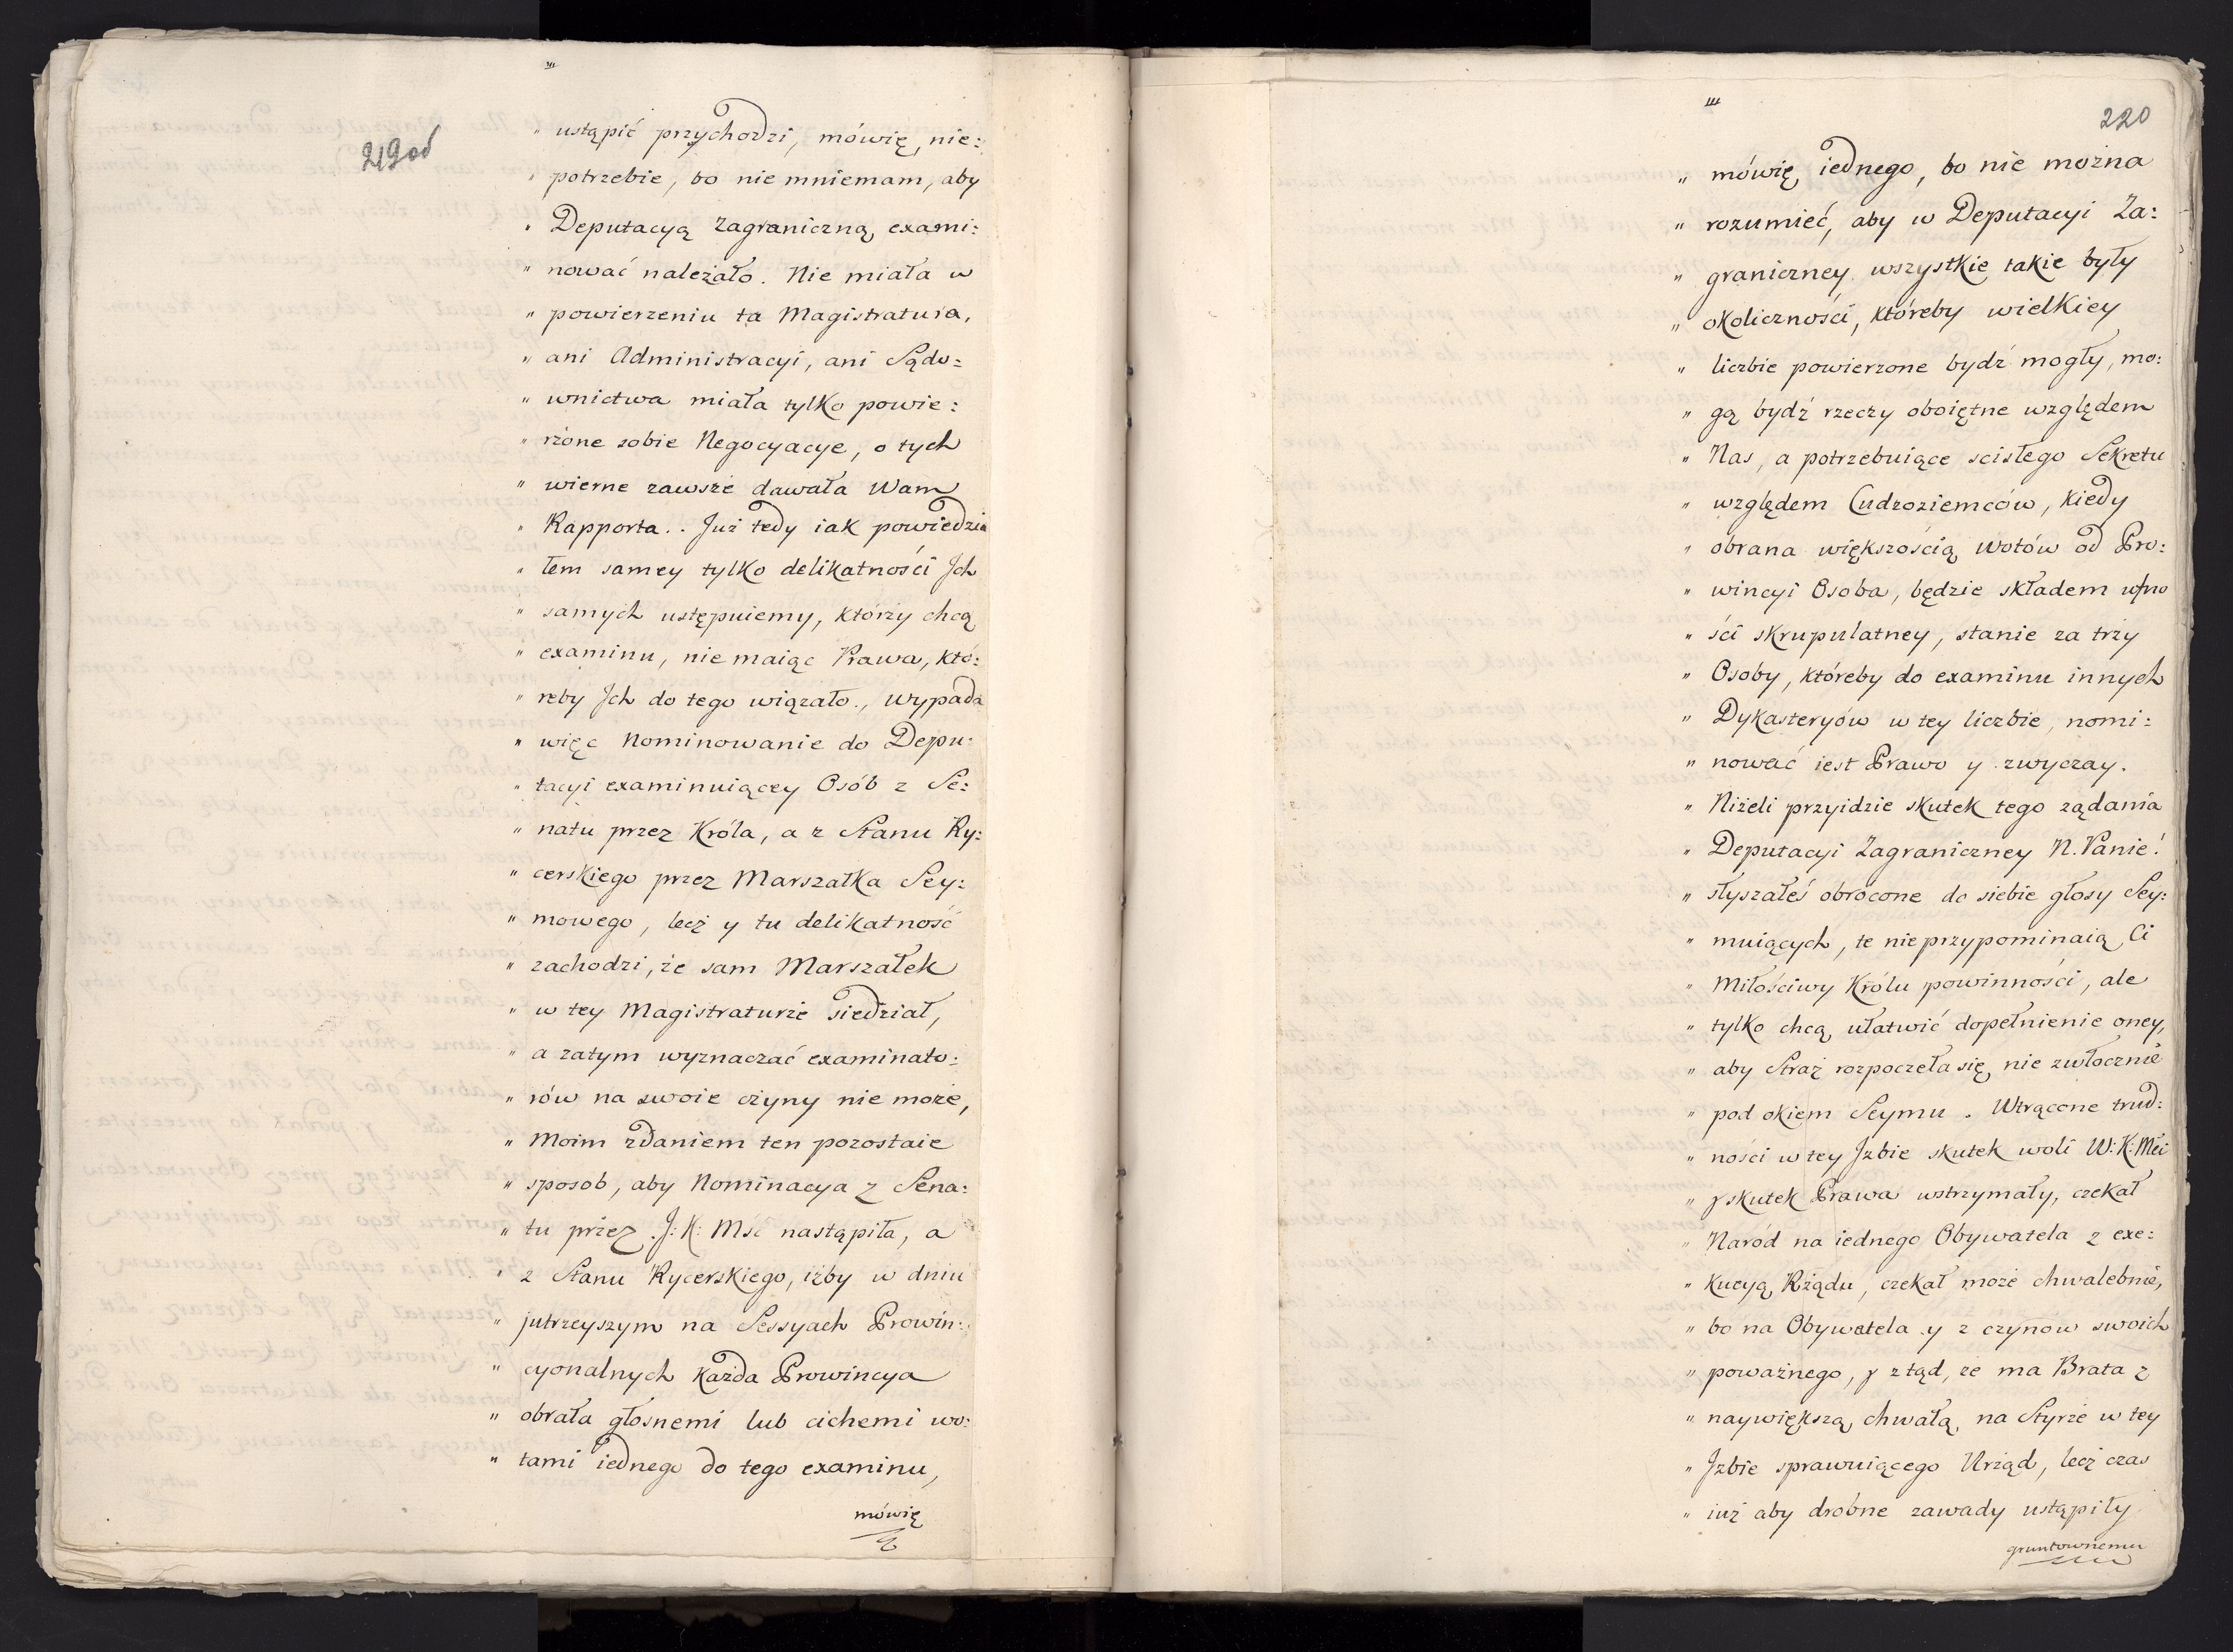 219od
" ustąpić przychodzi, mówię, nie:
" potrzebie, bo nie mniemam, aby
" Deputacyą Zagraniczną, exami:
" nować należało. Nie miała w
" powierzeniu ta Magistratura,
" ani Administracyi, ani Sądo:
" wnictwa miała tylko powie:
" rzone sobie Negocyacye, o tych
" wierne zawsze dawała Wam
" Rapporta.. Już tedy iak powiedzia
" łem samey tylko delikatności Jch
" samych ustępuiemy, którzy chcą
" examinu, nie maiąc Prawa, któ:
" reby Jch do tego wiązało., wypada
" więc Nominowanie do Depu:
" tacyi examinuiącey Osób z Se:
" natu przez Króla, a z Stanu Ry:
" cerskiego przez Marszałka Sey:
" mowego, lecz y tu delikatność
" zachodzi, że sam Marszałek
" w tey Magistraturze siedział,
" a zatym wyznaczać examinato:
" rów na swoie czyny nie może,
" Moim zdaniem ten pozostaie
" sposob, aby Nominacya z Sena:
" tu przez J: K: Mść nastąpiła, a
" z Stanu Rycerskiego, iżby w dniu
" jutrzeyszym na Sessyach Prowin:
" cyonalnych każda Prowincya
" obrała głosnemi lub cichemi wo:
" tami iednego do tego examinu,
mówię
220
" mówię iednego, bo nie można
" rozumieć, aby w Deputacyi Za:
" graniczney wszystkie takie były
" okoliczności, któreby wielkiey
" liczbie powierzone bydź mogły, mo:
" gą bydź rzeczy oboiętne względem
" Nas, a potrzebuiące scisłego Sekretu
" względem Cudzoziemców, kiedy
" obrana większością wotów od Pro:
" wincyi Osoba, będzie składem ufno
" ści skrupulatney, stanie za trzy
" Osoby, któreby do examinu innych
" Dykasteryów w tey liczbie, nomi:
" nować iest Prawo y zwyczay.
" Niżeli przyidzie skutek tego ządania
" Deputacyi Zagraniczney N. Panie!
" słyszałeś obrócone do siebie głosy Sey:
" muiących, te nie przypominaią Ci
" Miłościwy Królu powinności, ale
" tylko chcą ułatwić dopełnienie oney,
" aby Straż rozpoczeła się nie zwłocznie
" pod okiem Seymu. Wtrącone trud:
" ności w tey Jzbie skutek woli W: K: Mci
" y skutek Prawa wstrzymały, czekał
" Naród na iednego Obywatela z exe:
" kucyą Rządu, czekał może chwalebnie,
" bo na Obywatela y z czynow swoich
" poważnego, y ztąd, że ma Brata z
" naywiększą chwałą na Styrze w tey
" Jzbie sprawuiącego Urząd, lecz czas
" iuż aby drobne zawady ustąpiły
gruntownemu